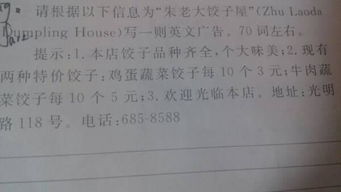 请根据以下信息为“朱老大饺子屋”(Zhu Laoda
Dumpling House)写一则英文广告。70 词左右。
提示:1.本店饺子品种齐全,个大味美;2.现有
两种特价饺子:鸡蛋蔬菜饺子每 10 个 3 元;牛肉蔬
菜饺子每 10 个 5 元;3.欢迎光临本店。地址:光明
路 118 号。电话:685-8588